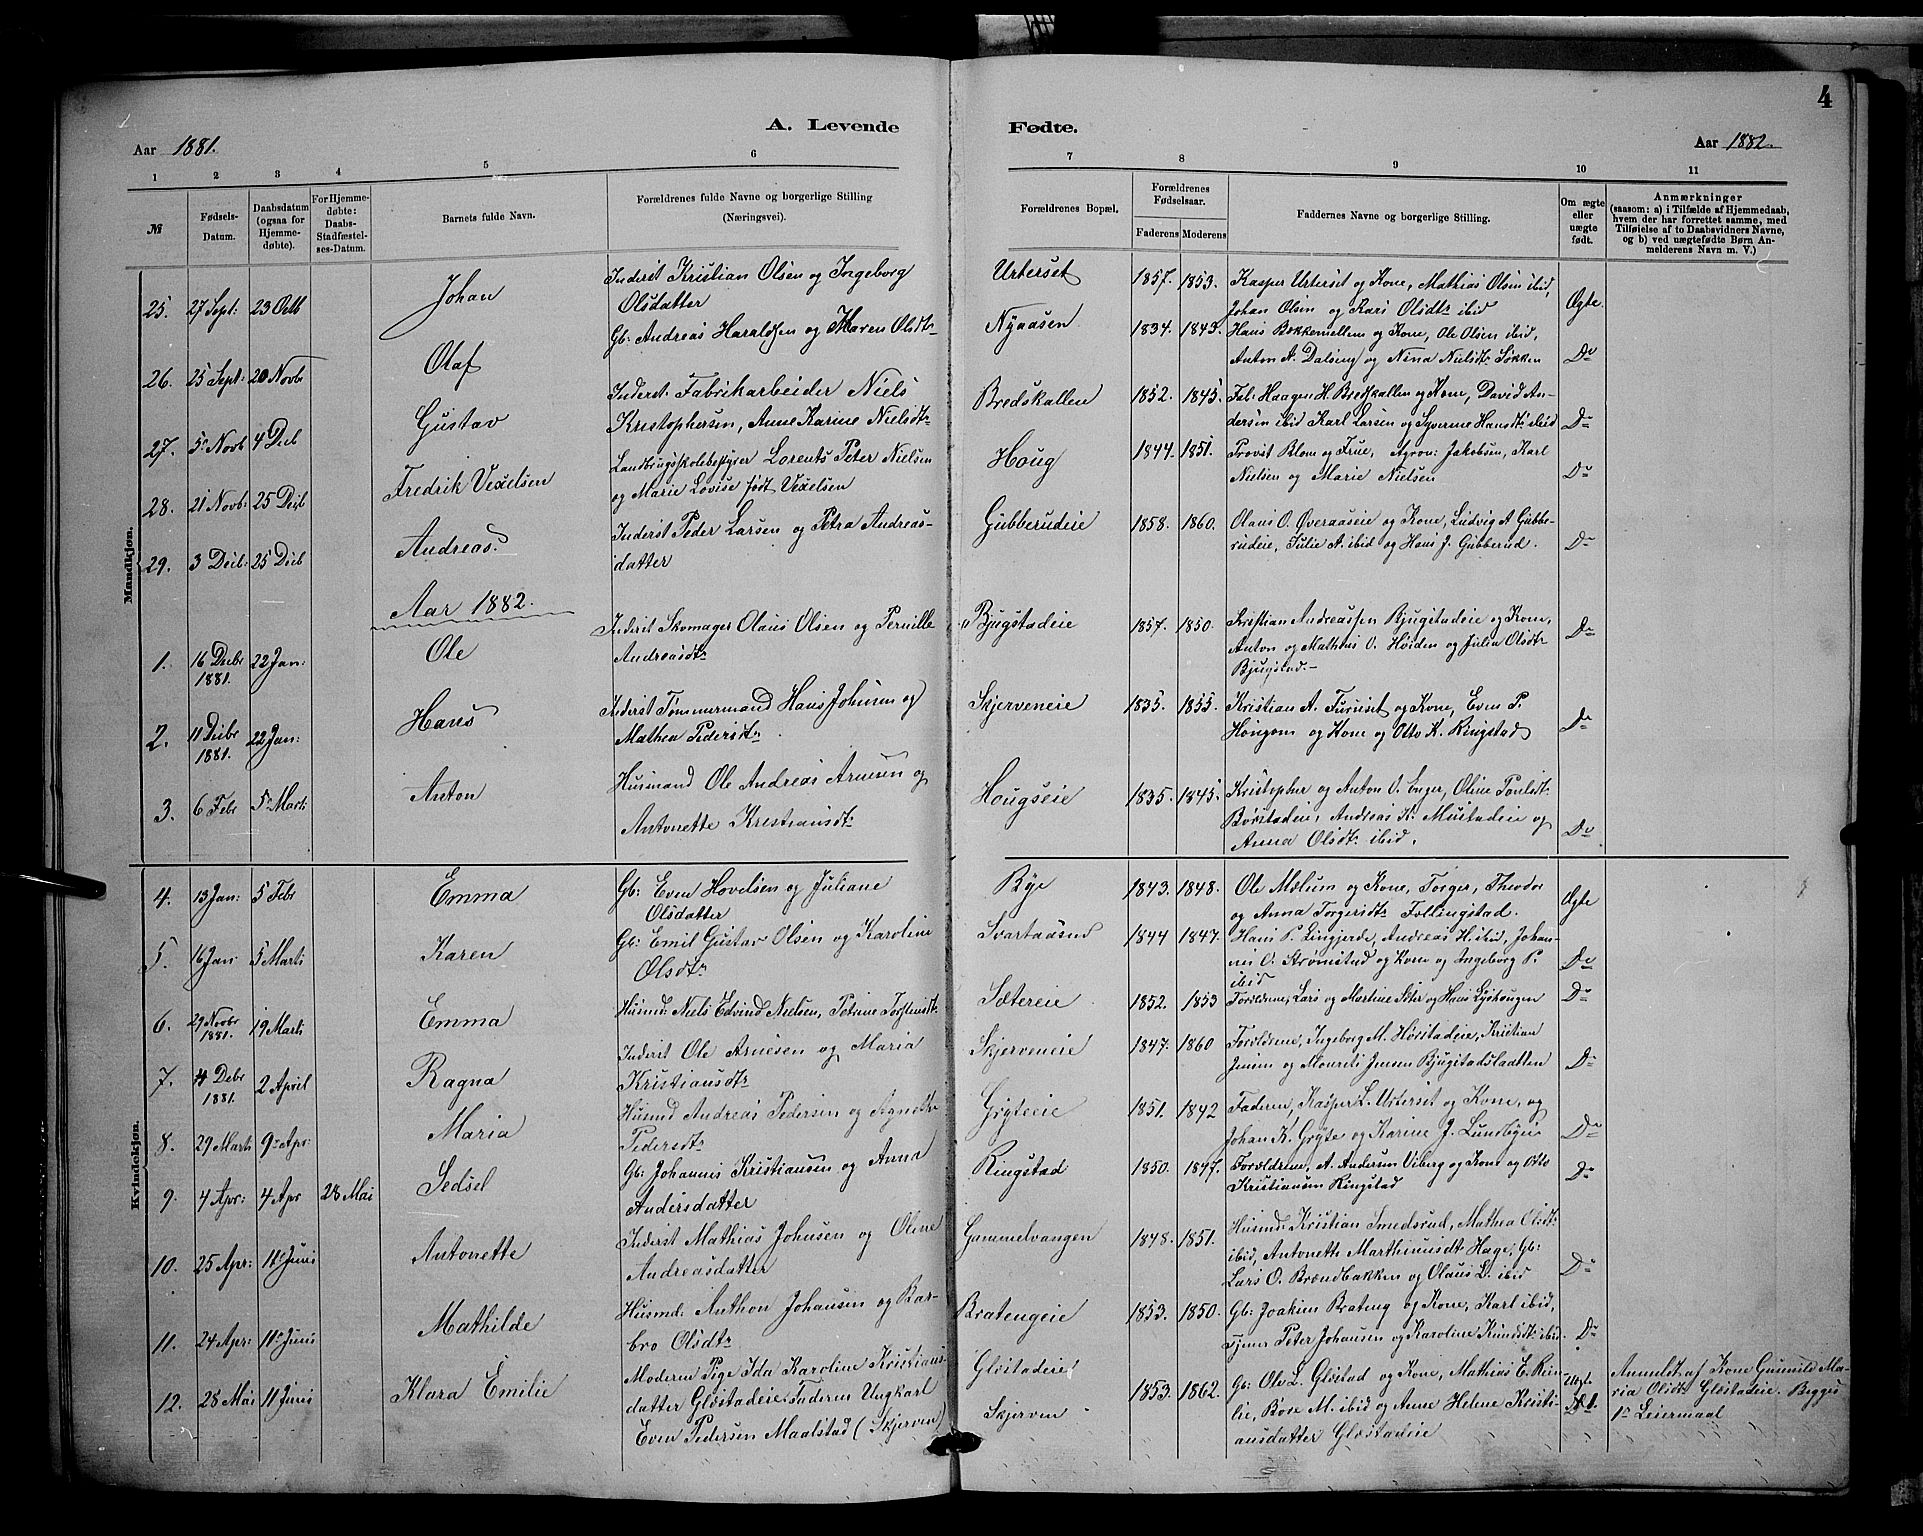 4
A. Levende Fødte.
Aar 1881. Aar 1882.
1 2 3 4 5 6 7 8 9 10 11
№
Fødsels-
Datum.
Daabsdatum
(ogsaa for
Hjemme-
døbte).
For Hjemme-
døbte:
Daabs-
Stadfæstel-
ses-Datum.
Barnets fulde Navn.
Forældrenes fulde Navne og borgerlige Stilling
(Næringsvei).
Forældrenes Bopæl.
Forældrenes
Fødselsaar.
Faderens Moderens
Faddernes Navne og borgerlige Stilling.
Om ægte
eller
uægte
født.
Anmærkninger
(saasom: a) i Tilfælde af Hjemmedaab,
hvem der har forrettet samme, med
Tilføielse af to Daabsvidners Navne,
og b) ved uægtefødte Børn An-
melderens Navn m. V.)
Mandkjøn.
25. 27 Sept: 23 Octb Johan
Inderst Kristian Olsen og Ingeborg
Olsdatter
Urterset 1857. 1853.
Kasper Urterset og Kone, Mathias Olsen ibid,
Johan Olsen og Kari Olsdtr ibid
Ægte.
26. 25 Sept: 20 Novb Olaf
Gb: Andreas Haraldsen og Maren Olsdtr
Nyaasen 1834. 1843.
Hans Bekkemellem og Kone, Ole Olsen ibid,
Anton A. Dalseng og Nina Nielsdtr Søkken
Do
27. 5 Novb 4 Decb Gustav
Inderst: Fabrikarbeider Niels
Kristophersen, Anne Karine Nielsdtr
Bredskallen 1852. 1845.
Fab: Haagen H. Bredskallen og Kone, David An-
dersen ibid Karl Larsen og Syverine Hansdtr ibid
Do
28. 21 Novb: 25 Decb Fredrik Vexelsen
Landbrugsskolebestyrer Lorents Peter Nielsen
og Marie Lovise født Vexelsen
Houg 1844. 1851.
Provst Blom og Frue, Agron: Jakobsen, Karl
Nielsen og Marie Nielsen
Do
29. 3 Decb: 25 Decb Andreas.
Inderst Peder Larsen og Petra Andreas-
datter
Gubberudeie 1858. 1860.
Olaus O. Øveraaseie og Kone, Ludvig A Gubbe-
rudeie, Julie A. ibid og Hans J. Gubberud.
Do
Aar 1882.
1. 16 Decbr 1881. 22 Jan: Ole
Inderst Skomager Olaus Olsen og Pernille
Andreasdtr
Bjugstadeie 1857. 1850.
Kristian Andreassen Bjugstadeie og Kone,
Anton og Mathias O. Hviden og Julia Olsdtr
Bjugstad.
Do
2. 11 Decbr 1881. 22 Jan: Hans
Inderst Tømmermand Hans Johnsen og
Mathea Pedersdtr
Skjerveneie 1835. 1855.
Kristian A. Furuset og Kone, Even P.
Hongom og Kone og Otto K. Ringstad
Do
3. 6 Febr 5 Marts Anton
Husmand Ole Andreas Arnesen og
Antonette Kristiansdtr
Hougseie 1835. 1845.
Kristopher og Anton O. Enger, Oline Poulsdtr
Børstadeie, Andreas K. Mustadeie og
Anna Olsdtr ibid.
Do
Kvindekjøn.
4. 13 Jan: 5 Febr Emma
Gb: Even Hovelsen og Juliane
Olsdatter
Rye 1843. 1848.
Ole Mælum og Kone, Torger, Theodor
og Anna Torgersdtr Føllingstad.
Ægte
5. 16 Jan 5 Marts Karen
Gb: Emil Gustav Olsen og Karoline
Olsdtr
Svartaasrud 1844 1847.
Hans P. Lingjerde, Andreas H. ibid, Johan-
nes O. Strømstad og Kone og Ingeborg P.
ibid
Do
6. 29 Novbr 1881. 19 Marts Emma
Husmd: Niels Edvind Nielsen, Petrine Torstensdtr
Sætereie 1852. 1853
Forældrene, Lars og Martine Sæter og Hans Lyshaugen
Do
7. 4 Decbr 1881. 2 April Ragna
Inderst Ole Arnesen og Maria
Kristiansdtr
Skjerveneie 1847. 1860
Forældrene, Ingeborg M. Hørstadeie, Kristian
Jensen og Mourits Jensen Bjugstadslaatten
Do
8. 29 Marts 9 Apr: Maria
Husmd Andreas Pedersen og Agnethe
Pedersdtr
Gryteeie 1851. 1842
Faderen, Kasper L. Urterset og Kone, og
Johan K. Gryte og Karine J. Lundbyeie
Do
9. 4 Apr: 4 Apr 28 Mai Sedsel
Gb: Johannes Kristiansen og Anna
Andersdatter
Ringstad 1850. 1847.
Forældrene, A. Andersen Viberg og Kone og Otto
Kristiansen Ringstad
Do
10. 25 Apr: 11 Juni Antonette
Inderst Mathias Johnsen og Oline
Andreasdatter
Gammelvangen 1848. 1851.
Husmd: Kristian Smedsrud, Mathea Olsdtr
ibid, Antonette Marthinusdtr Hage, Gb:
Lars O. Brændbakken og Olaus L. ibid
Do
11. 24 Apr: 11 Juni Mathilde
Husmd: Anthon Johansen og Bar-
bro Olsdtr
Bratengeie 1853. 1850.
Gb: Joakim Brateng og Kone, Karl ibid,
Tjener Peter Johansen og Karoline Knudsdtr ibid.
Do
12. 28 Mai 11 Juni Klara Emilie
Moderen Pige Ida Karoline Kristians-
datter Gløstadeie. Faderen Ungkarl
Even Pedersen Maalstad (Skjerven)
Gløstadeie
Skjerven 1853. 1862.
Gb: Ole L. Gløstad og Kone, Mathias E. Rin-
lie, Bore M. ibid og Anne Helene Kristi-
ansdatter Gløstadeie
Uægte
1.
Anmeldt af Kone Gunnild Ma-
ria Olsdtr Gløstadeie. Begges
1ste Leiermaal